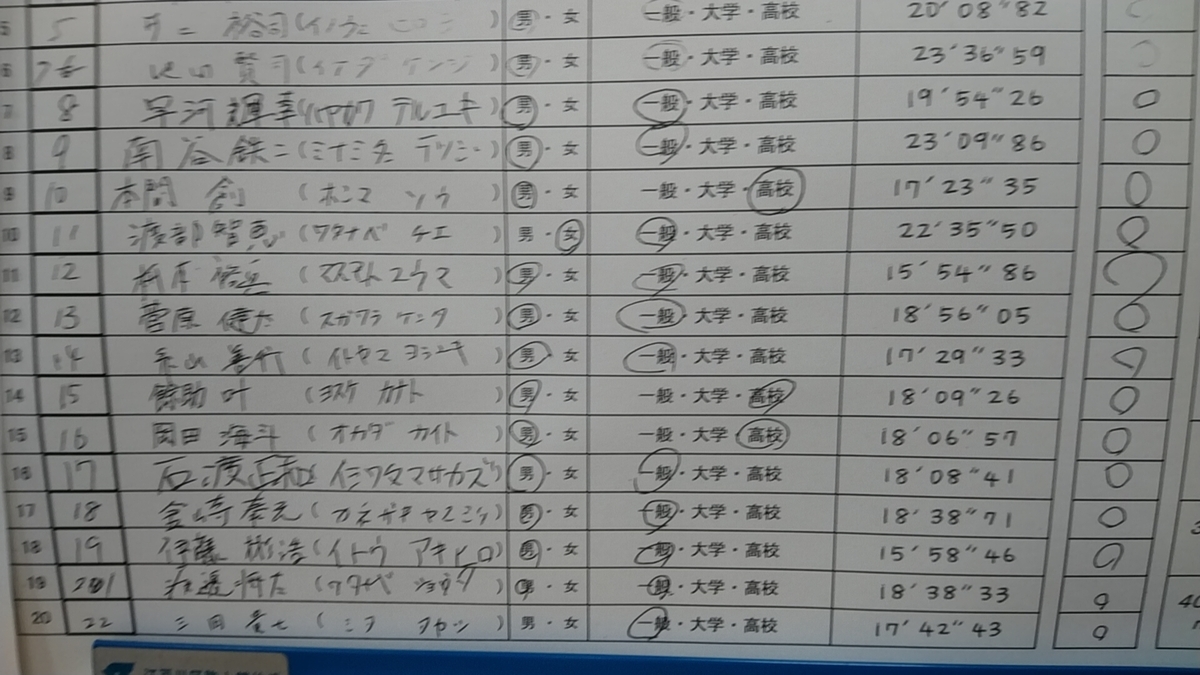 5 5 裕司 男・女 一般・大学・高校 20′08″82
6 賢司 (イケダ ケンジ) 男・女 一般・大学・高校 23′36″59
7 8 早河 輝幸 (ハヤカワ テルユキ) 男・女 一般・大学・高校 19′54″26 ○
8 9 南谷 鉄二 (ミナミタニ テツジ) 男・女 一般・大学・高校 23′09″86 ○
9 10 本間 創 (ホンマ ソウ) 男・女 一般・大学・高校 17′23″35 ○
10 11 渡部 智恵 (ワタナベ チエ) 男・女 一般・大学・高校 22′35″50 ○
11 12 (マスモト ユウマ) 男・女 一般・大学・高校 15′54″86 ○
12 13 菅原 健太 (スガワラ ケンタ) 男・女 一般・大学・高校 18′56″05 ○
13 14 糸山 (イトヤマ ヨシユキ) 男・女 一般・大学・高校 17′29″33 ○
14 15 餘助 叶 (ヨスケ カナト) 男・女 一般・大学・高校 18′09″26 ○
15 16 岡田 海斗 (オカダ カイト) 男・女 一般・大学・高校 18′06″57 ○
16 17 石渡 正和 (イシワタ マサカズ) 男・女 一般・大学・高校 18′08″41 ○
17 18 金崎 男・女 一般・大学・高校 18′38″71 ○
18 19 伊藤 彬浩 (イトウ アキヒロ) 男・女 一般・大学・高校 15′58″46 ○
19 渡邉 将太 (ワタナベ ショウタ) 男・女 一般・大学・高校 18′38″33 ○
20 22 三田 男・女 一般・大学・高校 17′42″43 ○